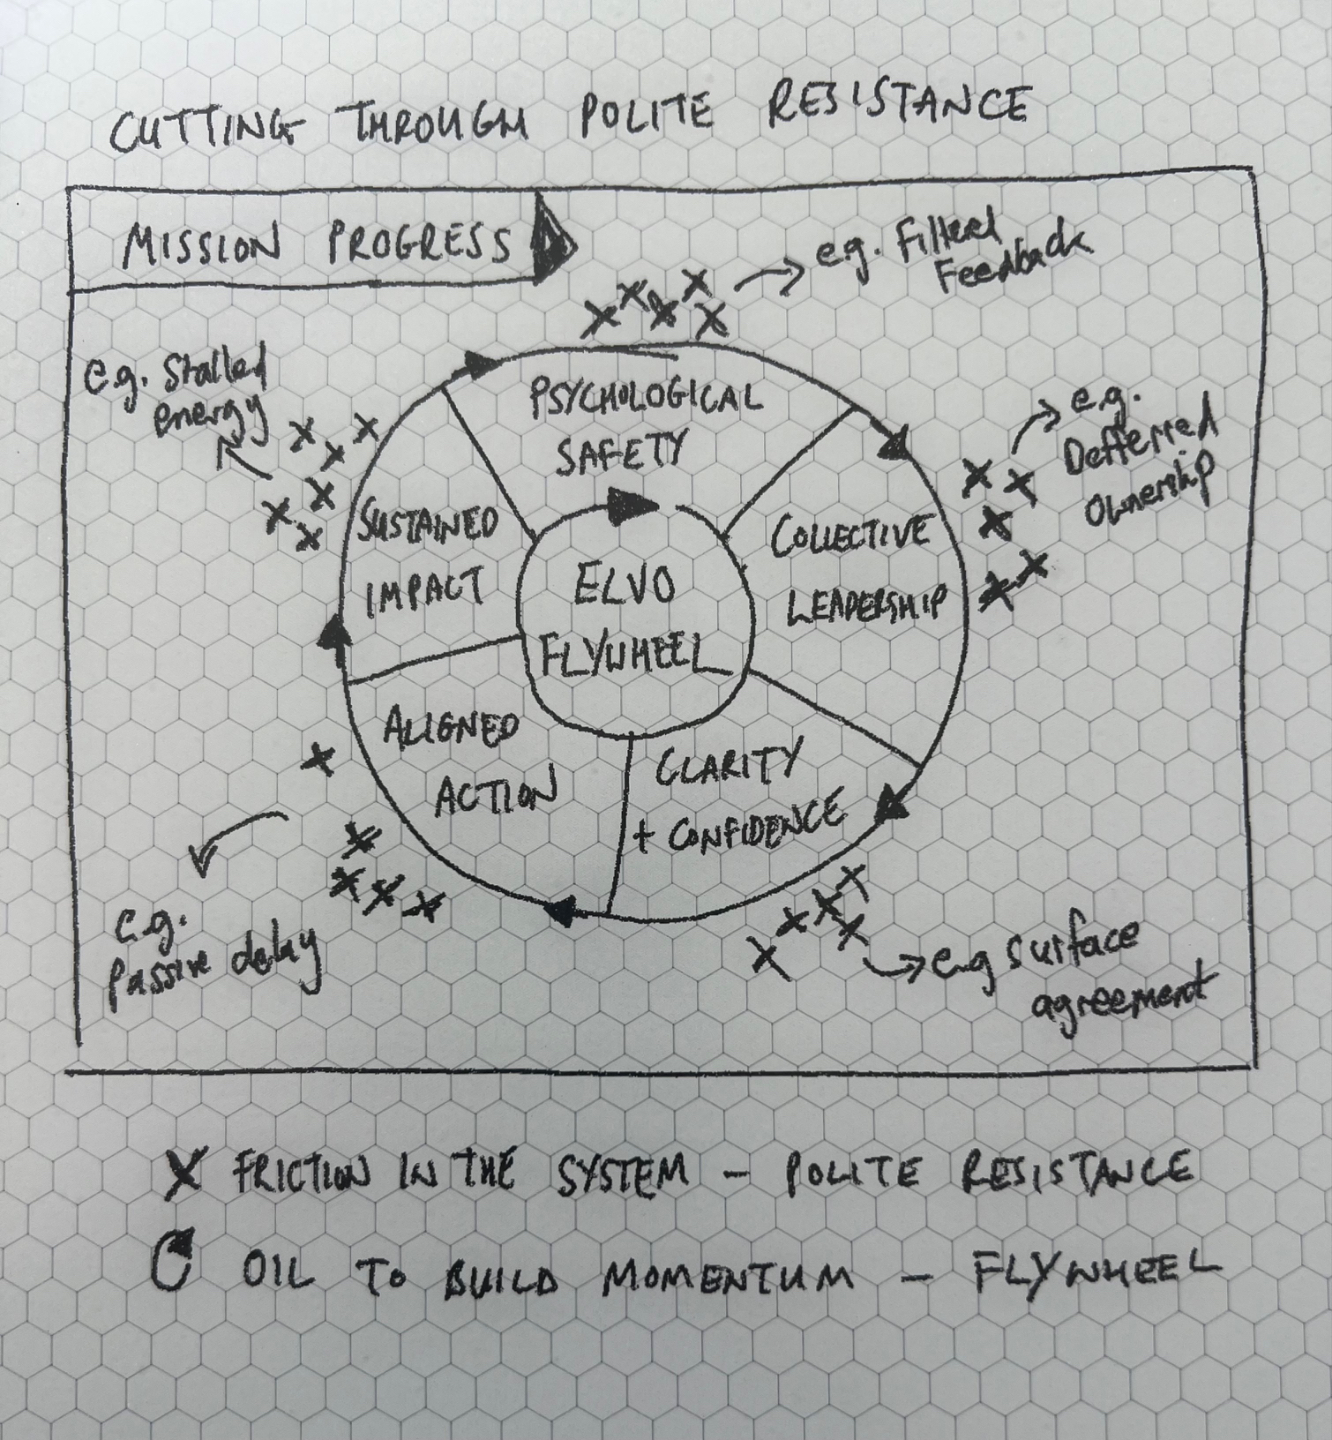 CUTTING THROUGH POLITE RESISTANCE
MISSION PROGRESS
e.g. Filtered
Feedback
e.g. Stalled
energy
e.g.
Defferred
ownership
PSYCHOLOGICAL
SAFETY
COLLECTIVE
LEADERSHIP
SUSTAINED
IMPACT
ELVO
FLYWHEEL
ALIGNED
ACTION
CLARITY
+ CONFIDENCE
e.g.
Passive delay
e.g surface
agreement
X FRICTION IN THE SYSTEM – POLITE RESISTANCE
OIL TO BUILD MOMENTUM – FLYWHEEL